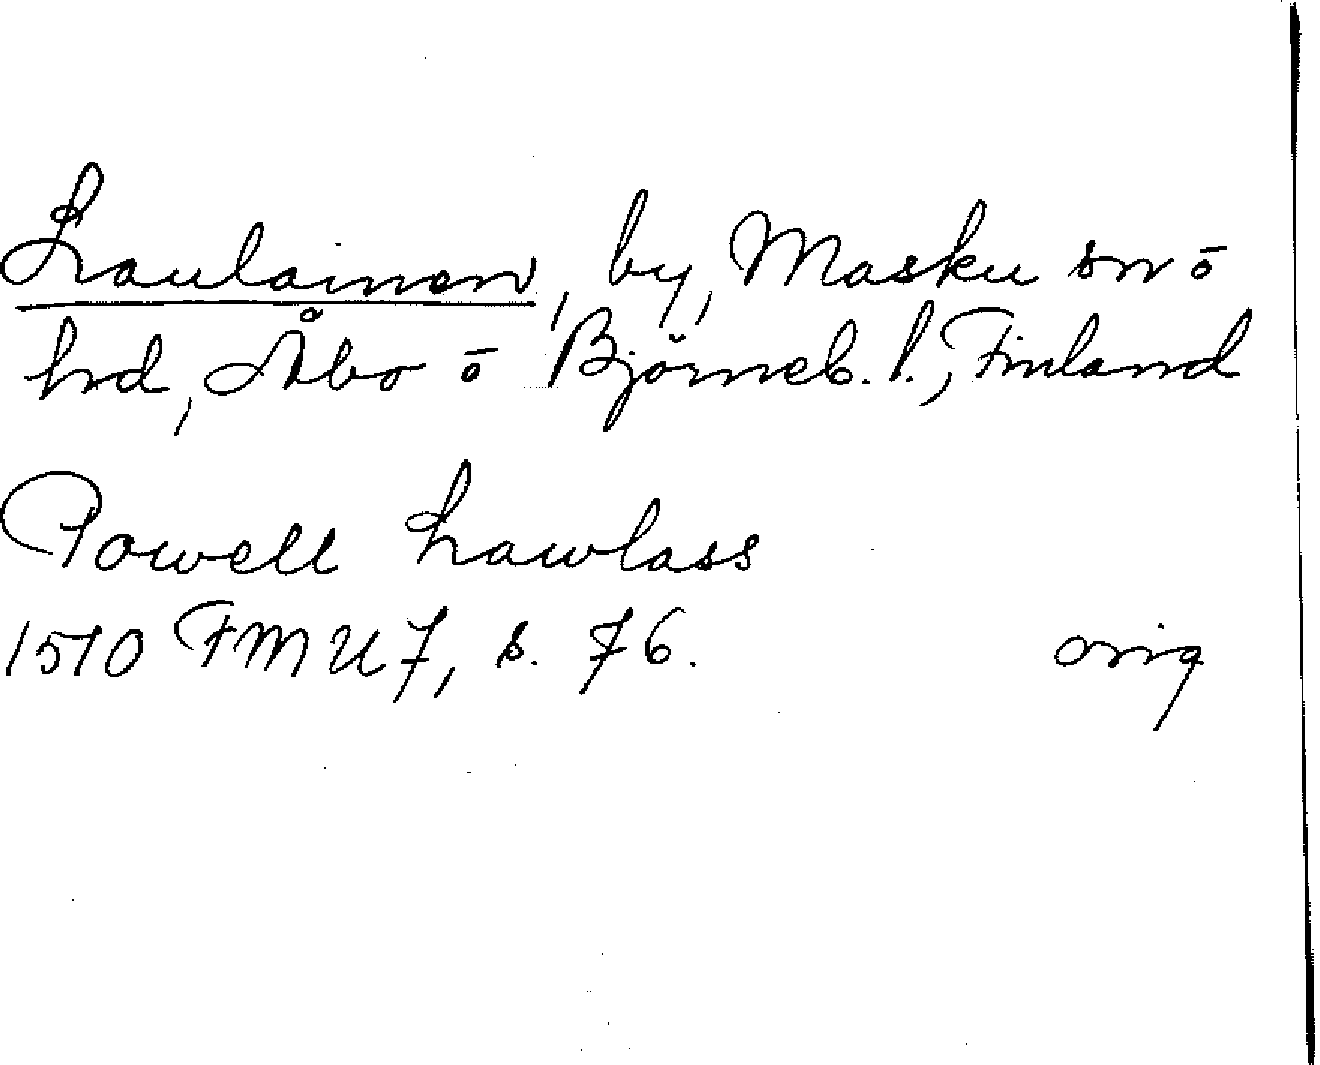 Laulainen, by, Masku sn ō
hd, Åbo ō Björneb. l., Finland
Powell Lawlass
1510 FMU 7, s. 76.
orig